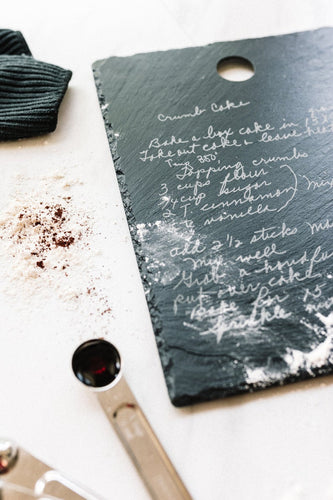 Crumb Cake
Bake a box cake in 13
Take out cake & leave
Temp 350°
Topping crumbs
3 cups flour
cup sugar
2 T. cinnamon
vanilla
add 2 1/2 sticks
Mix well
Grab a handful
put over cake
Bake for 15
sprinkle